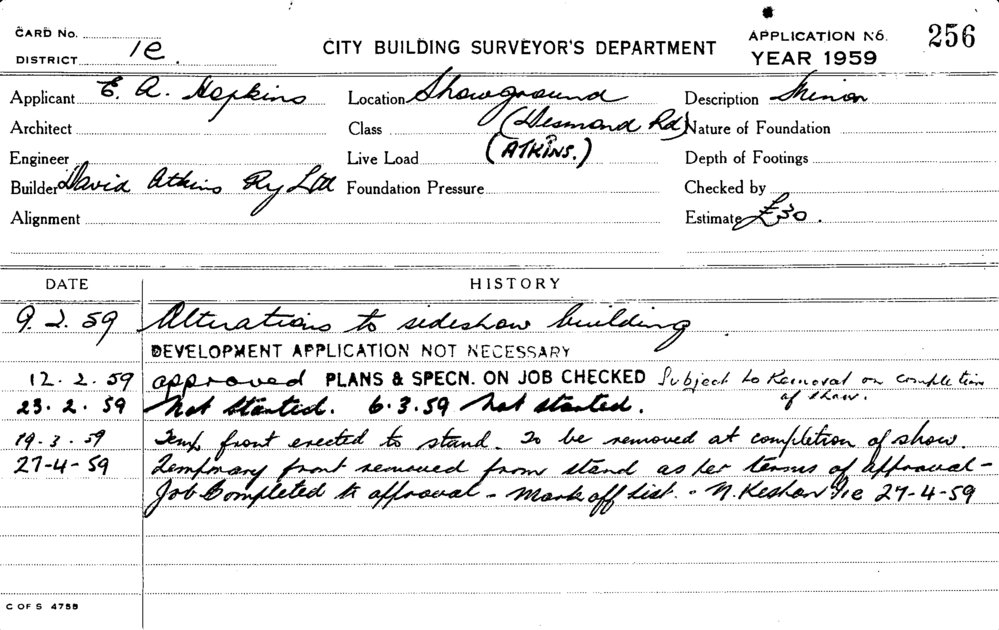 CARD No.
DISTRICT 1e.
CITY BUILDING SURVEYOR'S DEPARTMENT
APPLICATION No. 256
YEAR 1959
Applicant E. A. Hopkins Location Showground Description Minor
Architect Class (Desmond Rd) Nature of Foundation
Engineer Live Load (ATKINS.) Depth of Footings
Builder David Atkins Pty Ltd Foundation Pressure Checked by
Alignment Estimate £30.
DATE HISTORY
9. 2. 59 Alterations to sideshow building
DEVELOPMENT APPLICATION NOT NECESSARY
12. 2. 59 approved PLANS & SPECN. ON JOB CHECKED Subject to Removal on completion
of show.
23. 2. 59 Not Started. 6.3.59 Not started.
19.3.59 Temp front erected to stand. To be removed at completion of show.
27-4-59 Temporary front removed from stand as per terms of approval –
Job Completed to approval – Mark off list. – N. 27-4-59
C OF S 475B